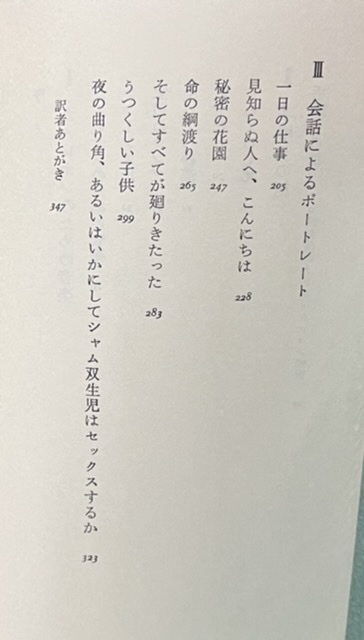 III 会話によるポートレート
一日の仕事 205
見知らぬ人へ、こんにちは 228
秘密の花園 247
命の綱渡り 265
そしてすべてが廻りきたった 283
うつくしい子供 299
夜の曲り角、あるいはいかにしてシャム双生児はセックスするか 323
訳者あとがき 347